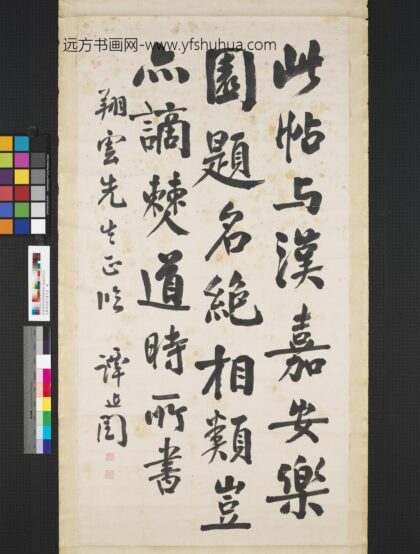 远方书画网-www.yfshuhua.com
此帖与漢嘉安樂
園題名絶相類豈
亦謫僰道時所書
翔雲先生正臨 譚延闓